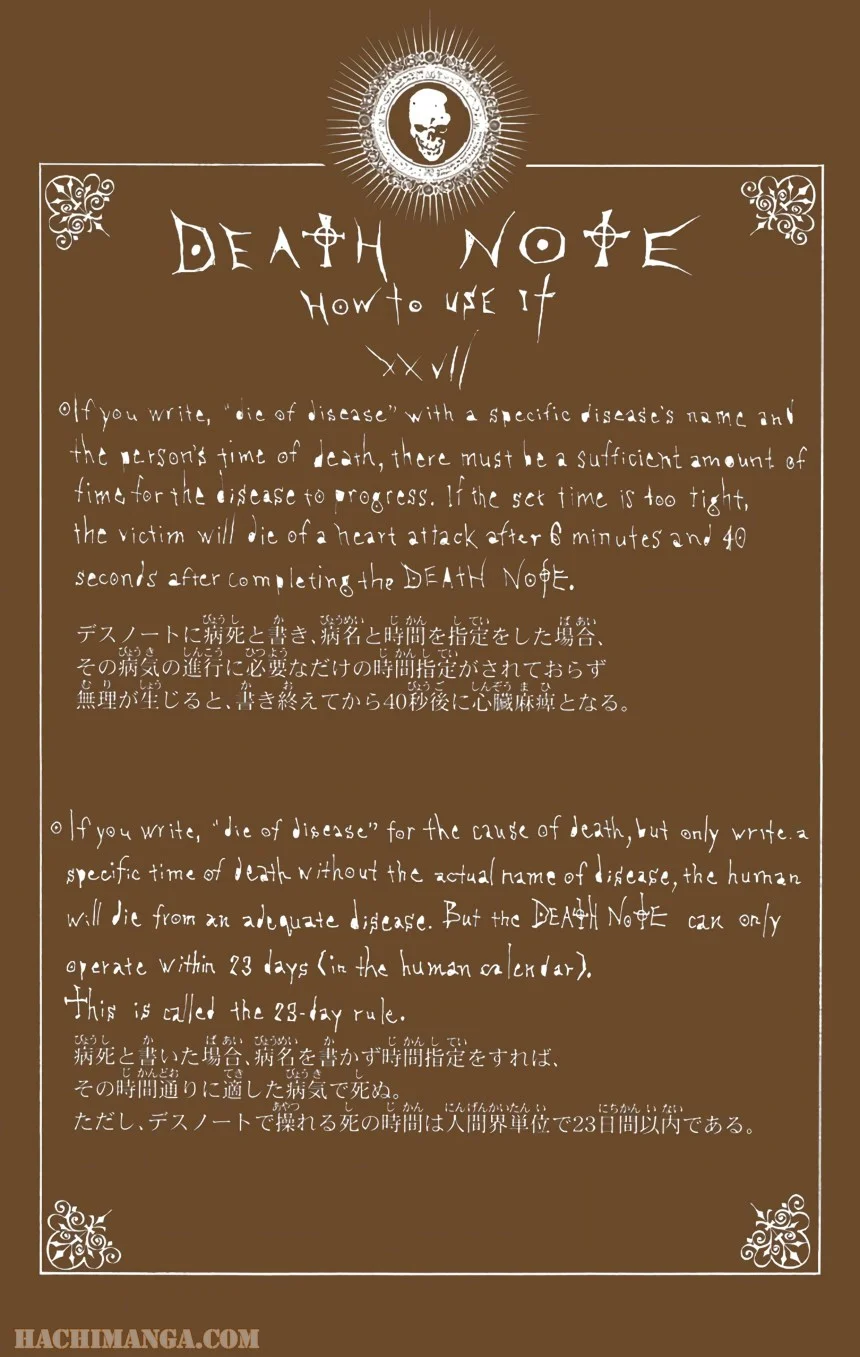 DEATH NOTE
HOW TO USE IT
XXVII
If you write, "die of disease" with a specific disease's name and
the person's time of death, there must be a sufficient amount of
time for the disease to progress. If the set time is too tight,
the victim will die of a heart attack after 6 minutes and 40
seconds after completing the DEATH NOTE.
デスノートに病死と書き、病名と時間を指定をした場合、
その病気の進行に必要なだけの時間指定がされておらず
無理が生じると、書き終えてから40秒後に心臓麻痺となる。
If you write, "die of disease" for the cause of death, but only write a
specific time of death without the actual name of disease, the human
will die from an adequate disease. But the DEATH NOTE can only
operate within 23 days (in the human calendar).
This is called the 23-day rule.
病死と書いた場合、病名を書かず時間指定をすれば、
その時間通りに適した病気で死ぬ。
ただし、デスノートで操れる死の時間は人間界単位で23日間以内である。
HACHIMANGA.COM